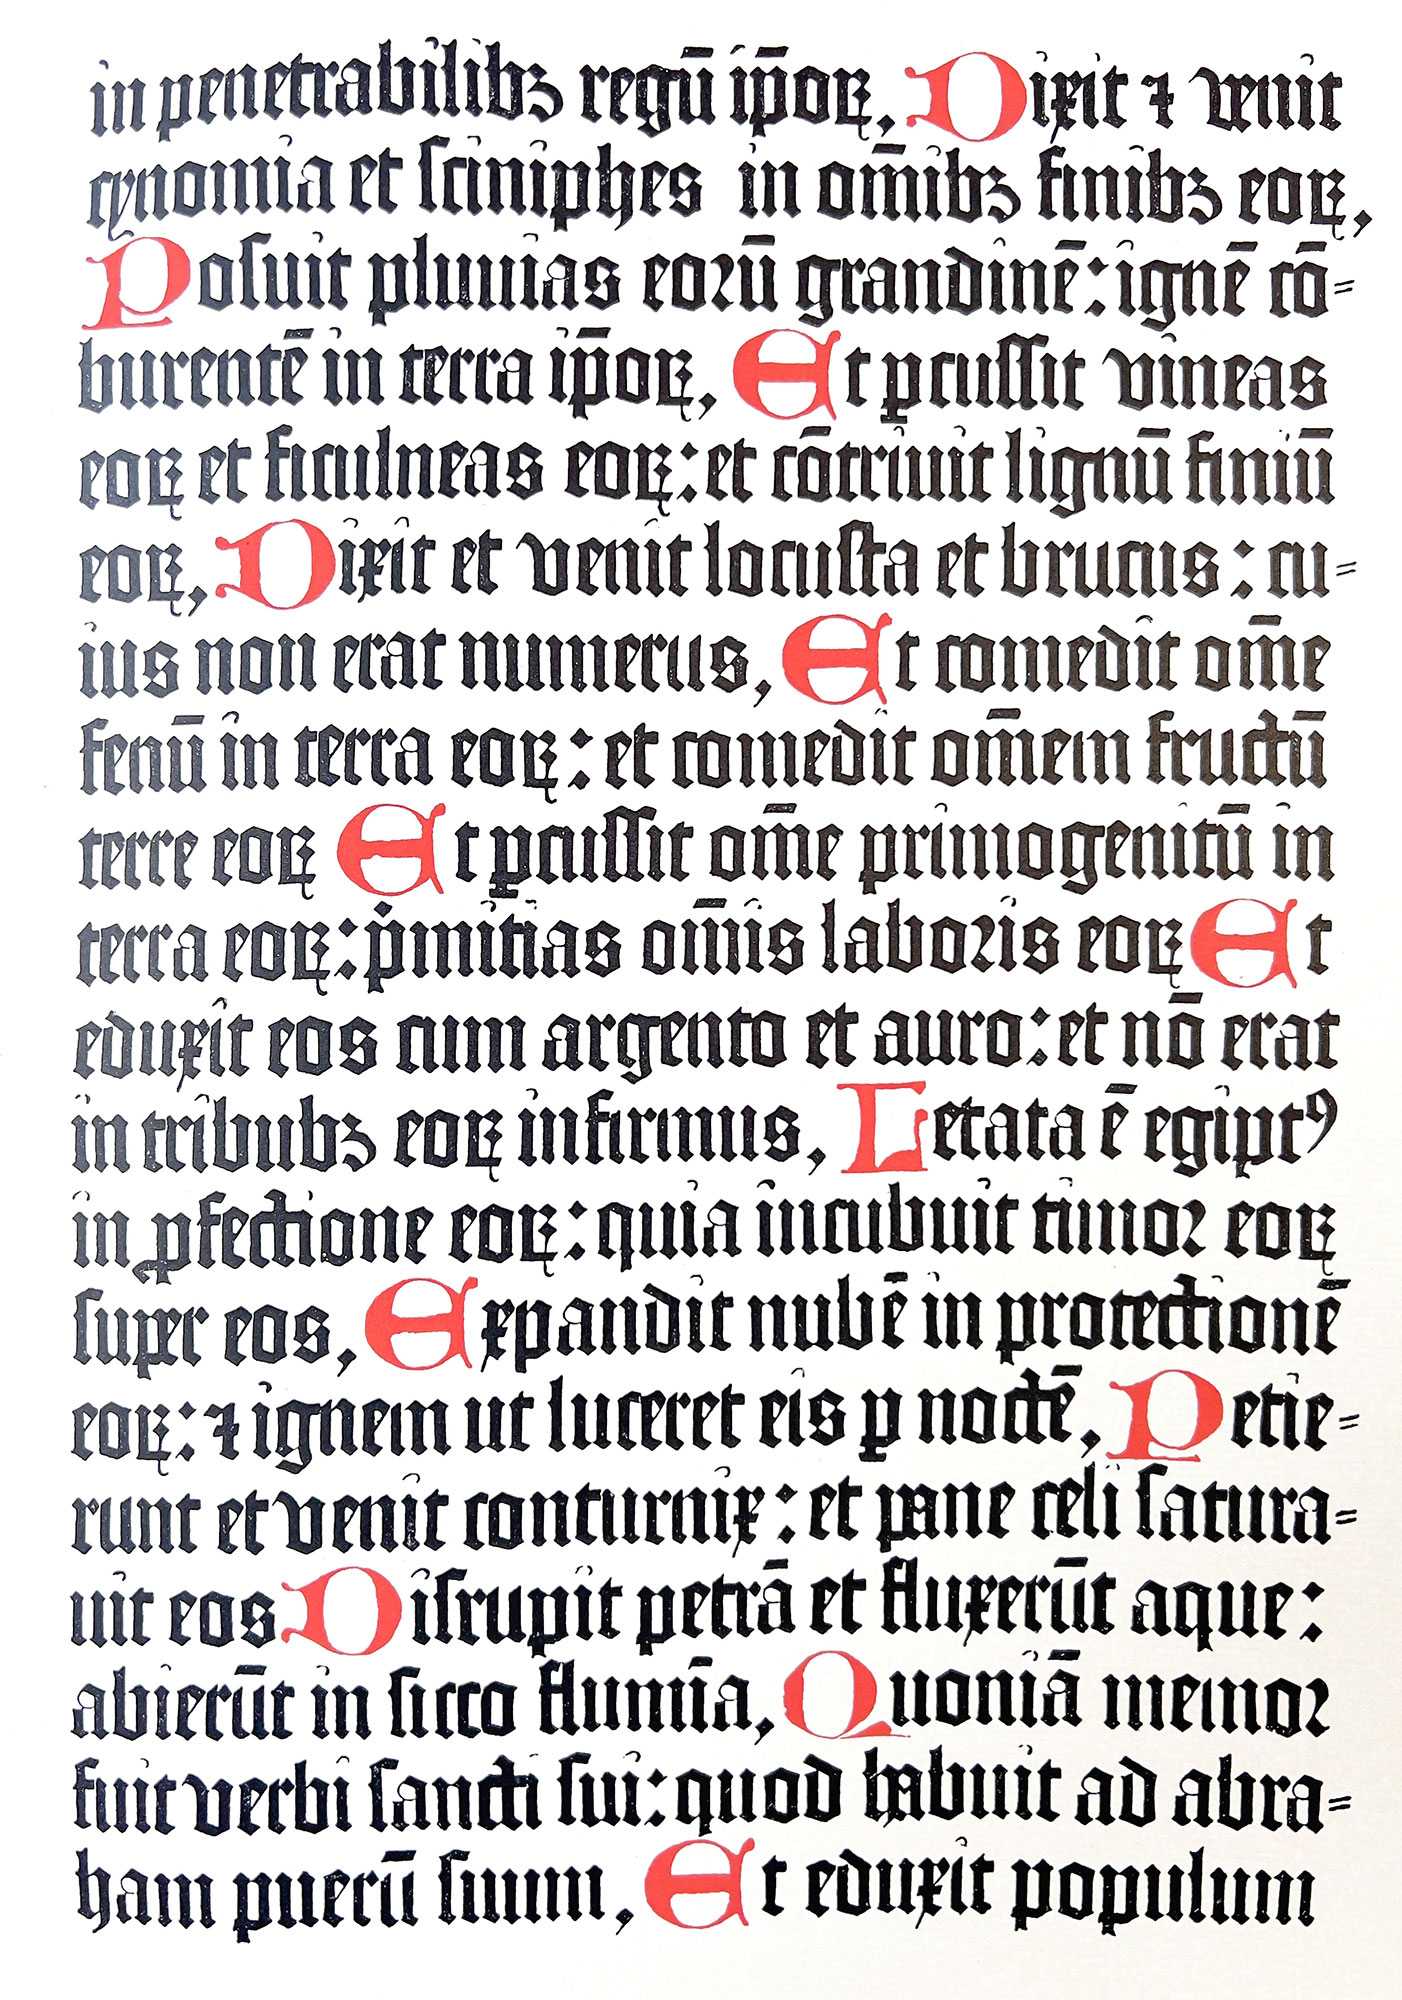 in penetrabilibꝫ regū ip̄oꝝ, Dixit ⁊ venit
cynomia et sciniphes in om̄ibꝫ finibꝫ eoꝝ,
Posuit pluuias eorū grandinē: ignē cō=
burentē in terra ip̄oꝝ, Et ꝑcussit vineas
eoꝝ et ficulneas eoꝝ: et cōtriuit lignū finiū
eoꝝ, Dixit et venit locusta et brucus: cu=
ius non erat numerus, Et comedit om̄e
fenū in terra eoꝝ: et comedit om̄em fructū
terre eoꝝ Et ꝑcussit om̄e primogenitū in
terra eoꝝ: pͥmitias om̄is laboris eoꝝ Et
eduxit eos cum argento et auro: et nō erat
in tribubꝫ eoꝝ infirmus, Letata ē egiptꝰ
in ꝓfectione eoꝝ: quia incubuit timor eoꝝ
super eos, Expandit nubē in protectionē
eoꝝ: ⁊ ignem ut luceret eis ꝑ noctē, Petie=
runt et venit conturnix: et pane celi satura=
uit eos Disrupit petrā et fluxerūt aque:
abierūt in sicco flumīa, Quoniā memor
fuit verbi sancti sui: quod habuit ad abra=
ham puerū suum, Et eduxit populum